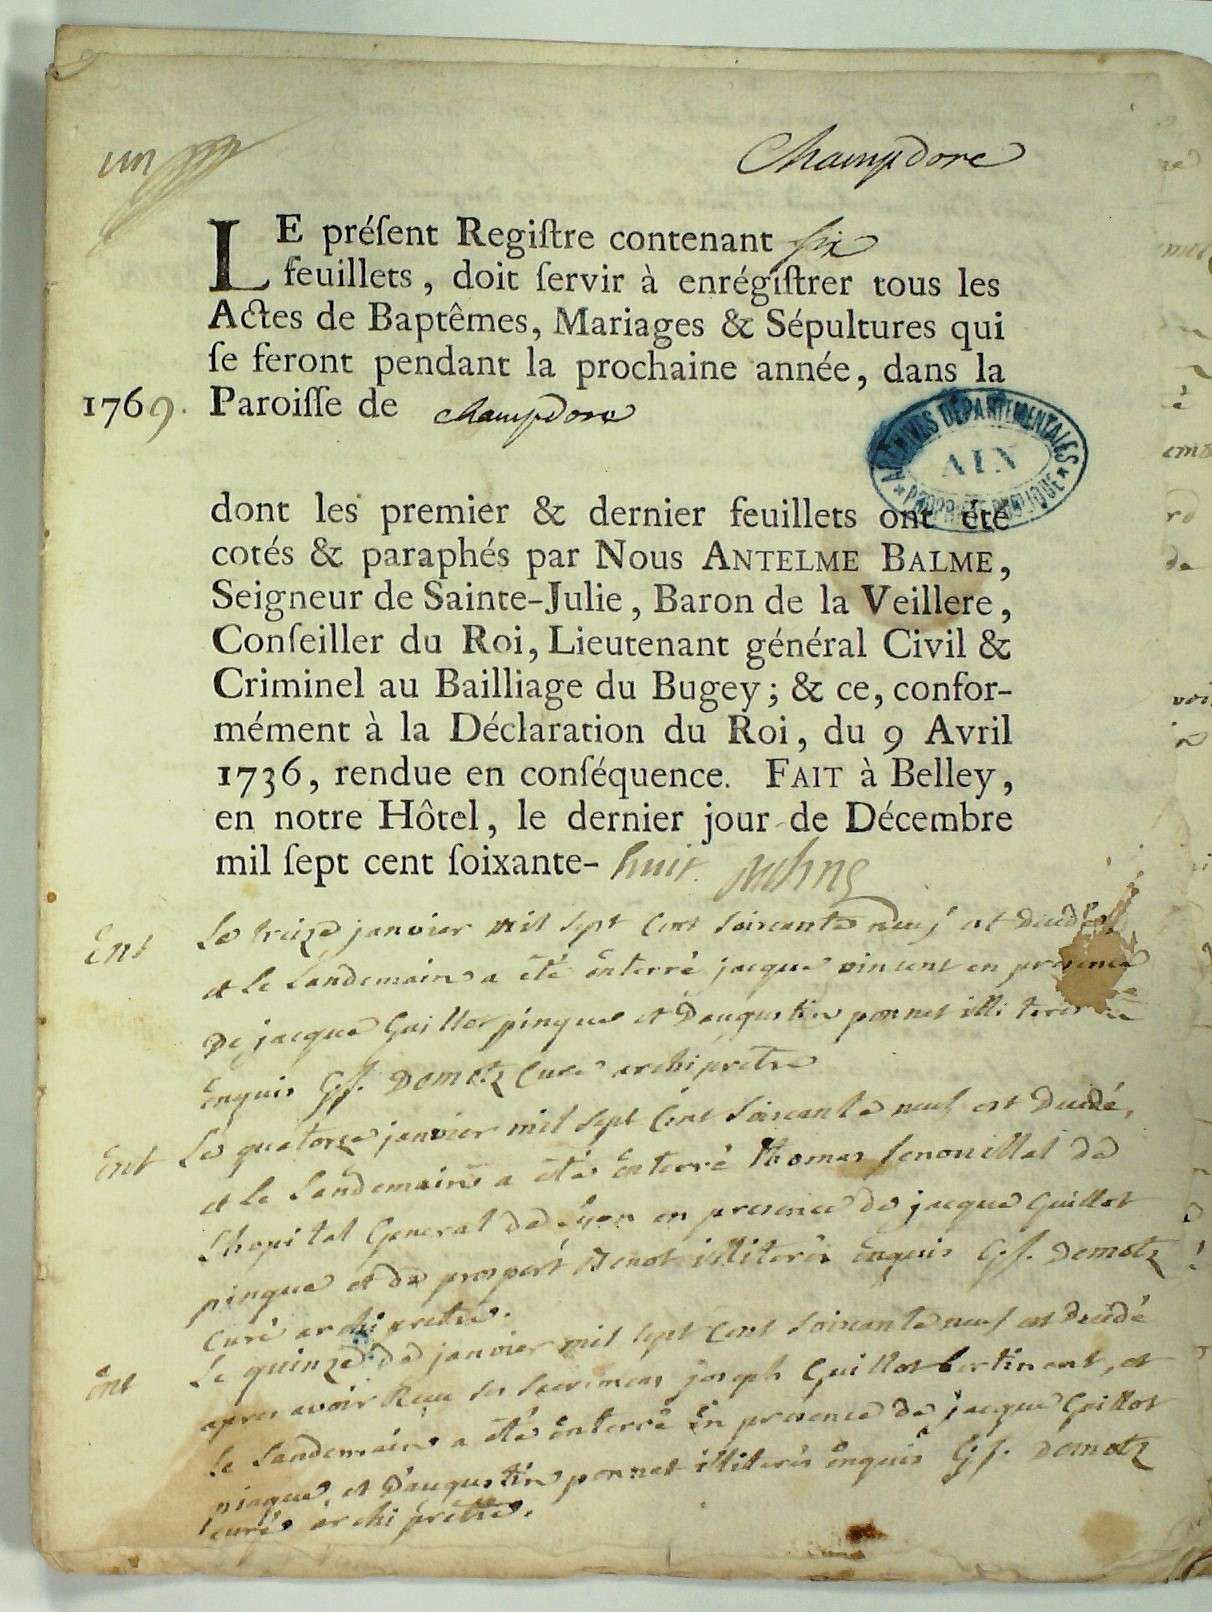 un
Champdore
LE préſent Regiſtre contenant six
feuillets, doit ſervir à enrégiſtrer tous les
Actes de Baptêmes, Mariages & Sépultures qui
ſe feront pendant la prochaine année, dans la
1769. Paroiſſe de champdore
ARCHIVES DÉPARTEMENTALES
AIN
* PROPRIÉTÉ PUBLIQUE *
dont les premier & dernier feuillets ont été
cotés & paraphés par Nous ANTELME BALME,
Seigneur de Sainte-Julie, Baron de la Veillere,
Conſeiller du Roi, Lieutenant général Civil &
Criminel au Bailliage du Bugey; & ce, confor-
mément à la Déclaration du Roi, du 9 Avril
1736, rendue en conſéquence. FAIT à Belley,
en notre Hôtel, le dernier jour de Décembre
mil ſept cent ſoixante- huit.
Ent Le treize janvier mil sept cent soixante neuf est décédé
et le landemain a été enterré jacque vincent en presence
De jacque Guillot pingue et Daugustin ponnet
enquis G. f. Demotz curé archiprêtre
Ent Le quatorze janvier mil sept cent soixante neuf est décédé,
et le landemain a été enterré thomas fenouillet de
l'hopital General de Lyon en presence de jacque Guillot
pingue et de prospert Benot illiterés enquis G. f. Demotz
curé archi pretre.
Ent Le quinze de janvier mil sept cent soixante neuf est décédé
apres avoir Reçu ses sacremens joseph Guillot bertinent, et
le landemain a été enterré en presence de jacque Guillot
pingue, et D'augustin ponnet illiterés enquis G. f. Demotz
curé archi prêtre.